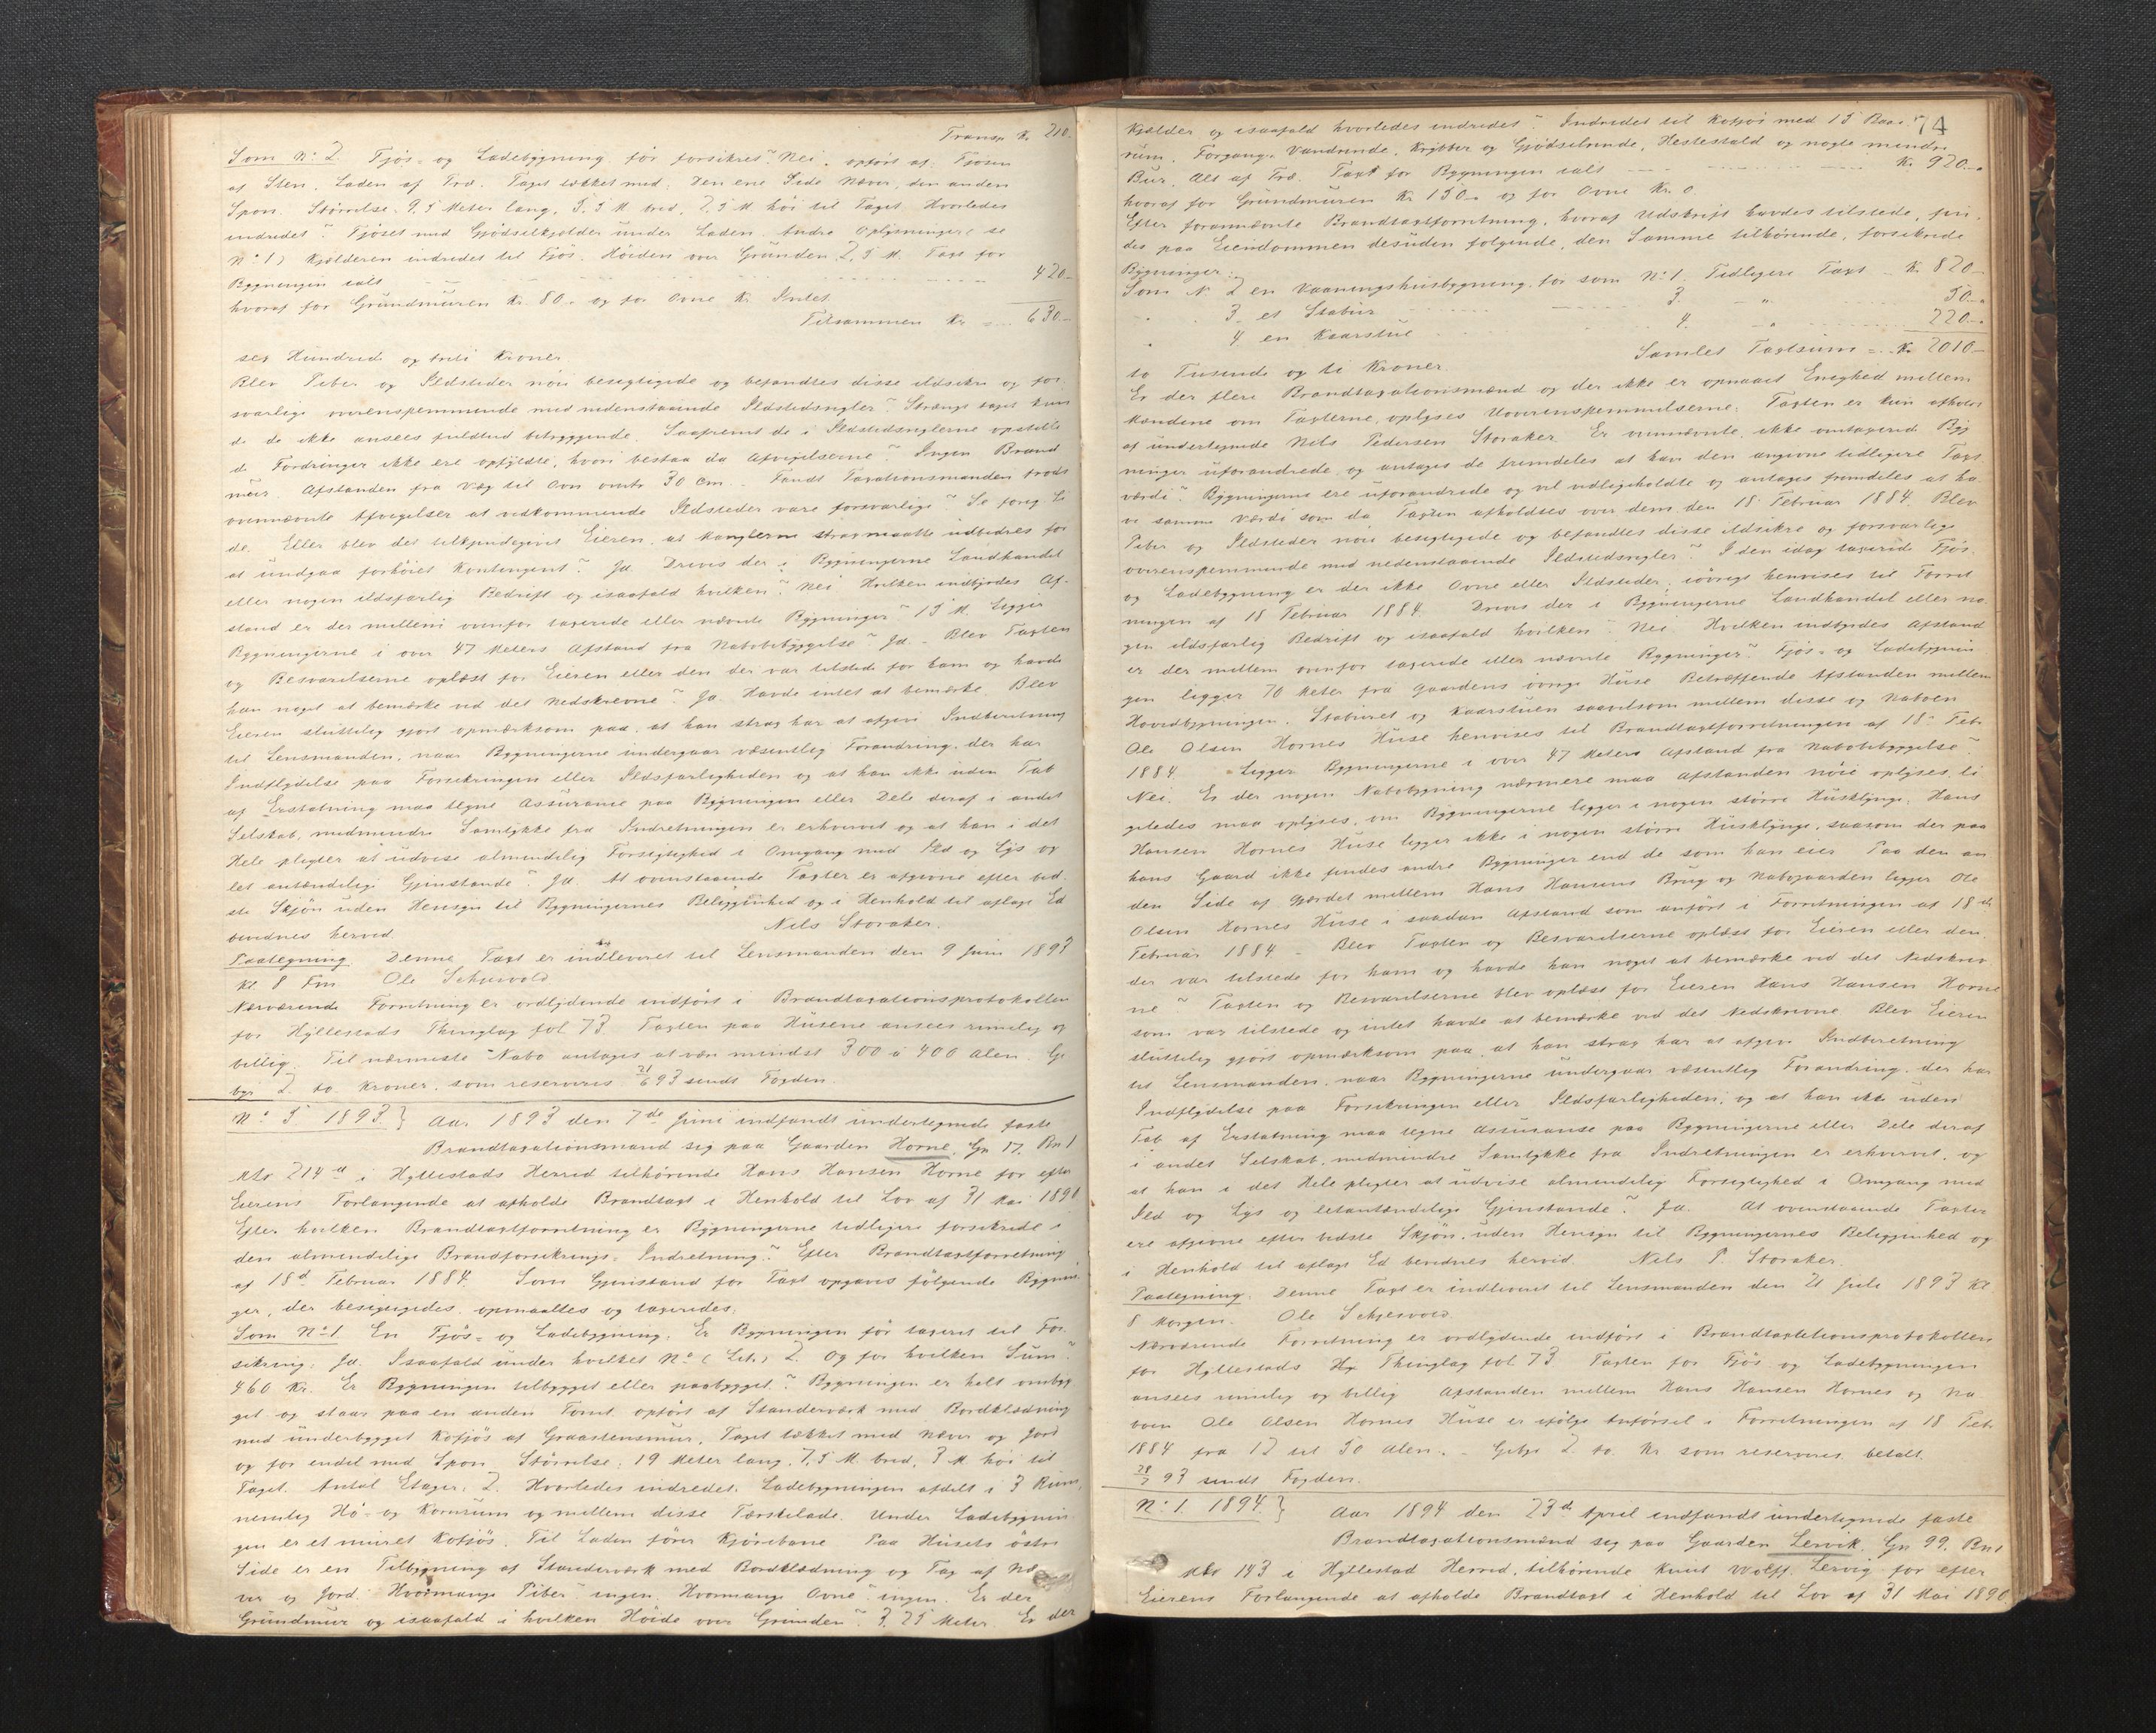 Transp. Kr. 210.
Som No. 2. Fjøs- og Ladebygning før forsikret? Nei, opført af: Fjøsen
af Sten, Laden af Træ. Taget tækket med: Den ene Side Næver, den anden
Spon. Størrelse. 9,5 Meter lang, 5,5 M. bred, 2,5 M. høi til Taget. Hvorledes
indredet? Fjøset med Gjødselkjelder under Laden. Andre Oplysninger (se
No. 1) Kjelderen indredet til Fjøs. Høiden over Grunden 2,5 M. Taxt for
Bygningen ialt 420.-
hvoraf for Grundmuren Kr. 80.- og for Ovne Kr. Intet.
Tilsammen Kr. 630.-
sex Hundred og treti Kroner.
Blev Piber og Ildsteder nøie besigtigede og befandtes disse ildsikre og for-
svarlige overensstemmende med nedenstaaende Ildstedsregler? Strængt taget kun
de de ikke ansees fuldtud betryggende. Saafremt de i Ildstedsreglerne opstille
de Fordringer ikke ere opfyldte, hvori bestaa da Afvigelserne? Ingen Brand
mur. Afstanden fra Væg til Ovn omtr. 30 cm. - Fandt Taxationsmanden trods
ovennævnte Afvigelser at vedkommende Ildsteder vare forsvarlige? Se foreg-
de. Eller blev det tilkjendegivet Eieren, at Manglerne strax maatte udbedres for
at undgaa forhøiet Kontingent? Ja. Drives der i Bygningerne Landhandel
eller nogen ildsfarlig Bedrift og isaafald hvilken? Nei. Hvilken indbyrdes Af-
stand er der mellem ovenfor taxerede eller nævnte Bygninger? 15 M. Ligger
Bygningerne i over 47 Meters Afstand fra Nabobebyggelse? Ja. - Blev Taxten
og Besvarelserne oplæst for Eieren eller den der var tilstede for ham og havde
han noget at bemærke ved det Nedskrevne? Ja. Havde intet at bemærke. Blev
Eieren sluttelig gjort opmærksom paa, at han strax har at afgive Indberetning
til Lensmanden, naar Bygningerne undergaar væsentlig Forandring, der har
Indflydelse paa Forsikringen eller Ildsfarligheden og at han ikke uden Tab
af Erstatning maa tegne Assurance paa Bygningen eller Dele deraf i andet
Selskab, medmindre Samtykke fra Indretningen er erhvervet og at han i det
Hele pligter at udvise almindelig Forsigtighed i Omgang med Ild og Lys og
let antændelige Gjenstande? Ja. At ovenstaaende Taxter er afgivne efter bed-
ste Skjøn uden Hensyn til Bygningernes Beliggenhed og i Henhold til aflagt Ed
bevidnes herved. Nils Storaker.
Paategning. Denne Taxt er indleveret til Lensmanden den 9 Juni 1893
Kl. 8 Fm. Ole Schjesvold
Nærværende Forretning er ordlydende indført i Brandtaxationsprotokollen
for Hyllestads Thinglag fol. 73. Taxten paa Husene ansees rimelig og
billig. Til nærmeste Nabo antages at være mindst 300 à 400 Alen. Ge-
byr 2 to Kroner, som reserveres. 21/6 93 sendt Fogden.
No. 5 1893. } Aar 1893 den 7de Juni indfandt undertegnede faste
Brandtaxationsmand sig paa Gaarden Horne, Gn 17, Bn 1
Mtr 214a i Hyllestads Herred tilhørende Hans Hansen Horne for efter
Eierens Forlangende at afholde Brandtaxt i Henhold til Lov af 31 Mai 1890
Efter hvilken Brandtaxtforretning er Bygningerne tidligere forsikrede i
den almindelige Brandforsikrings-Indretning? Efter Brandtaxtforretning
af 18d Februar 1884. Som Gjenstand for Taxt opgaves følgende Bygnin-
ger, der besigtigedes, opmaaltes og taxeredes:
Som No. 1. En Fjøs- og Ladebygning. Er Bygningen før taxeret til For-
sikring: Ja. Isaafald under hvilket No. (Litr.) 2. Og for hvilken Sum?
460 Kr. Er Bygningen tilbygget eller paabygget? Bygningen er helt ombyg
get og staar paa en anden Tomt, opført af Standerværk med Bordklædning
med underbygget Kofjøs af Graastensmur, Taget tækket med Næver og Jord
og for endel med Spon. Størrelse: 19 Meter lang, 7,5 M. bred, 3 M. høi til
Taget. Antal Etager: 2. Hvorledes indredet: Ladebygningen afdelt i 3 Rum,
nemlig Hø- og Kornrum og mellem disse Tærskelade. Under Ladebygnin-
gen er et muret Kofjøs. Til Laden fører Kjørebane. Paa Husets østre
Side er en Tilbygning af Standerværk med Bordklædning og Tag af Næ-
ver og Jord. Hvormange Piber? ingen. Hvormange Ovne? ingen. Er der
Grundmur og isaafald i hvilken Høide over Grunden? 3,25 Meter. Er der
74
Kjelder og isaafald hvorledes indredet? Indredet til Kofjøs med 15 Baas-
rum, Forgang, Vandrende, Krybber og Gjødselrende, Hestestald og nogle mindre
Bur, Alt af Træ. Taxt for Bygningen ialt Kr. 920.-
hvoraf for Grundmuren Kr. 150.- og for Ovne Kr. 0.
Efter forannævnte Brandtaxtforretning, hvoraf Udskrift havdes tilstede, fin-
des paa Eiendommen desuden følgende, den Samme tilhørende, forsikrede
Bygninger:
Som No. 2 en Vaaningshusbygning, før som No. 1. Tidligere Taxt Kr. 820.-
" 3. et Stabur 3. " 50.-
" 4 en Kaarstue 4. " 220.-
Samlet Taxtsum = Kr. 2010.-
to Tusende og ti Kroner.
Er der flere Brandtaxationsmænd og der ikke er opnaaet Enighed mellem
Mændene om Taxterne, oplyses Uoverensstemmelserne: Taxten er kun afholdt
af undertegnede Nils Pedersen Storaker. Er ovennævnte, ikke omtaxerede Byg
ninger uforandrede og antages de fremdeles at have den angivne tidligere Taxt
værdi? Bygningerne ere uforandrede og vel vedligeholdte og antages fremdeles at ha-
ve samme Værdi som da Taxten afholdtes over dem den 18. Februar 1884. Blev
Piber og Ildsteder nøie besigtigede og befandtes disse ildsikre og forsvarlige
overensstemmende med nedenstaaende Ildstedsregler? I den idag taxerede Fjøs-
og Ladebygning er der ikke Ovne eller Ildsteder, iøvrigt henvises til Forret
ningen af 18 Februar 1884. Drives der i Bygningerne Landhandel eller no-
gen ildsfarlig Bedrift og isaafald hvilken? Nei. Hvilken indbyrdes Afstand
er der mellem ovenfor taxerede eller nævnte Bygninger? Fjøs- og Ladebygnin
gen ligger 70 Meter fra Gaardens øvrige Huse. Betræffende Afstanden mellem
Hovedbygningen, Staburet og Kaarstuen saavelsom mellem disse og Naboen
Ole Olsen Hornes Huse henvises til Brandtaxtforretningen af 18. Feb.
1884. Ligger Bygningerne i over 47 Meters Afstand fra Nabobebyggelse?
Nei. Er der nogen Nabobygning nærmere maa Afstanden nøie oplyses, li
geledes maa oplyses, om Bygningerne ligger i nogen større Husklynge: Hans
Hansen Hornes Huse ligger ikke i nogen større Husklynge, saasom der paa
hans Gaard ikke findes andre Bygninger end de som han eier. Paa den an-
den Side af Gjærdet mellem Hans Hansens Brug og Nabogaarden ligger Ole
Olsen Hornes Huse i saadan Afstand som anført i Forretningen af 18de
Februar 1884. - Blev Taxten og Besvarelserne oplæst for Eieren eller den
der var tilstede for ham og havde han noget at bemærke ved det Nedskrev
ne? Taxten og Besvarelserne blev oplæst for Eieren Hans Hansen Horne
som var tilstede og intet havde at bemærke ved det Nedskrevne. Blev Eieren
sluttelig gjort opmærksom paa, at han strax har at afgive Indberetning
til Lensmanden, naar Bygningerne undergaar væsentlig Forandring, der har
Indflydelse paa Forsikringen eller Ildsfarligheden, og at han ikke uden
Tab af Erstatning maa tegne Assuranse paa Bygningerne eller Dele deraf
i andet Selskab, medmindre Samtykke fra Indretningen er erhvervet, og
at han i det Hele pligter at udvise almindelig Forsigtighed i Omgang med
Ild og Lys og letantændelige Gjenstande? Ja. At ovenstaaende Taxter
ere afgivne efter bedste Skjøn, uden Hensyn til Bygningernes Beliggenhed og
i Henhold til aflagt Ed bevidnes herved. Nils P. Storaker.
Paategning: Denne Taxt er indleveret til Lensmanden den 21 Juli 1893 Kl.
8 Morgen. Ole Schjesvold
Nærværende Forretning er ordlydende indført i Brandtaxtetionsprotokollen
for Hyllestads Hy Thinglag fol. 73. Taxten for Fjøs og Ladebygningen
ansees rimelig og billig. Afstanden mellem Hans Hansen Hornes og Na
boen Ole Olsen Hornes Huse er ifølge Anførsel i Forretningen af 18 Feb.
1884 fra 12 til 50 Alen. - Gebyr 2 to Kr. som reserveres. betalt.
28/7 93 sendt Fogden.
No. 1. 1894. } Aar 1894 den 23d April indfandt undertegnede faste
Brandtaxationsmænd sig paa Gaarden Lervik, Gn 99, Bn 1
Mtr 143 i Hyllestad Herred, tilhørende Knut Wolff Lervig for efter
Eierens Forlangende at afholde Brandtaxt i Henhold til Lov af 31 Mai 1890